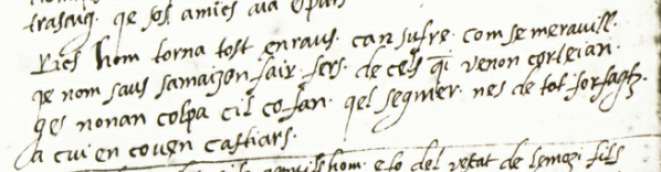 trascug. qe sos amics aia
Rics hom torna tost enraus. can sufre. com se meravill.
qe nom saus samaizon fair. fers. de cels q̄i venon corteian.
ges nonan colpa cil co fan. qel segnier. nes de tot forfagz.
a cui en coven castiars.
hom. e fo del de lemozi fills